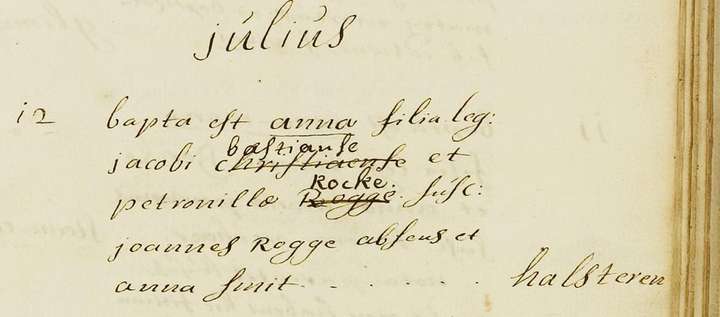 júliús
12 bapta est anna filia leg:
bastianse
jacobi christiaense et
Rocke.
petronillæ Rogge. súsc:
joannes Rogge absens et
anna smit . . . . . halsteren